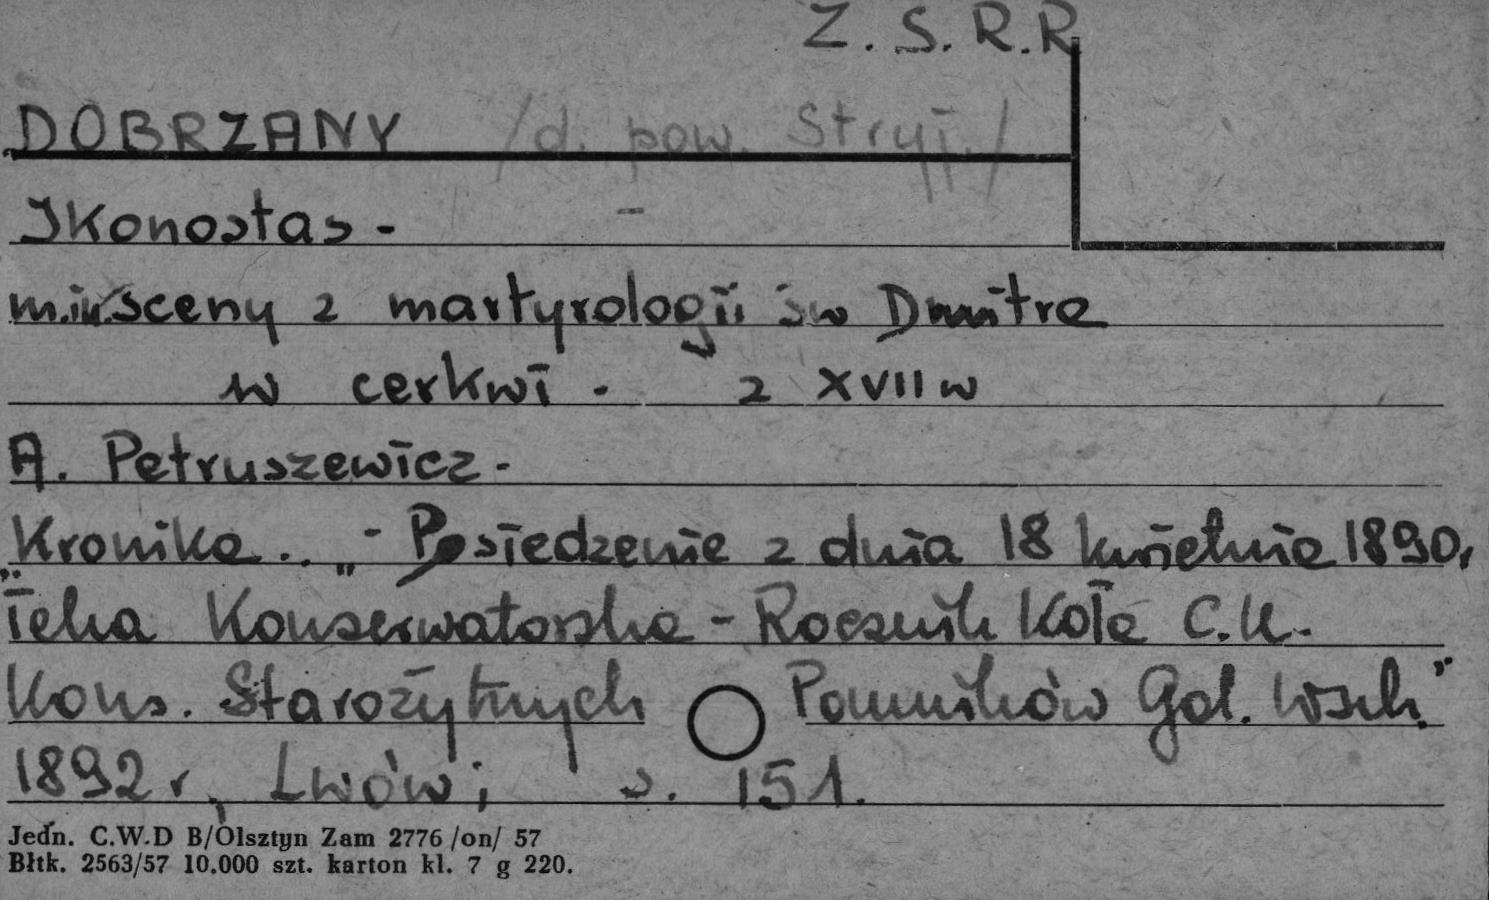 Z.S.R.R
DOBRZANY /d. pow. Stryj./
Ikonostas -
m.in. sceny z martyrologii św Dmitra
w cerkwi - z XVII w
A. Petruszewicz -
Kronika.. " - Posiedzenie z dnia 18 kwietnia 1890r
"Teka Konserwatorska - Rocznik Koła C.K.
Kons. Starożytnych Pomników Gal. Wsch."
1892 r, Lwów; s. 151.
Jedn. C.W.D B/Olsztyn Zam 2776 /on/ 57
Bltk. 2563/57 10.000 szt. karton kl. 7 g 220.